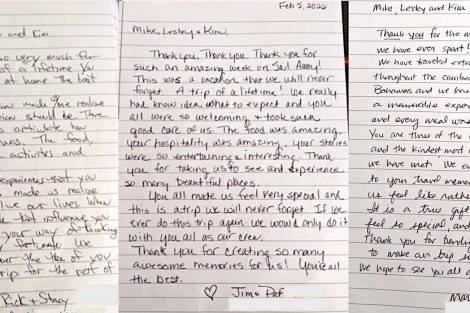 and Kim
so very much for
of a lifetime you
at home the last
made me realize
should be. There
articulate how
The food,
activities and
experiences that you
made us realize
live our lives. When
that influence you
your way of thinking
fortunate. We
the two of you
trip for the rest of
Rick + Stacy
Feb 5, 2022
Mike, Lesley + Kim,
Thank you, Thank you, Thank you for
such an amazing week on Sail Away!
This was a vacation that we will never
forget. A trip of a lifetime! We really
had know idea what to expect and you
all were so welcoming + took such
good care of us. The food was amazing,
your hospitality was amazing, your stories
were so entertaining + interesting. Thank
you for taking us to see and experience
so many beautiful places.
You all made us feel very special and
this is a trip we will never forget. If we
ever do this trip again we would only do it
with you all as our crew.
Thank you for creating so many
awesome memories for us! You're all
the best.
♡ Jim +
Mike, Lesley and Kim
Thank you for the
we have ever spent!
We have traveled
throughout the
Bahamas and we
a memorable
and every meal
You are three of the
and the kindest most
we have met. We
to your travel
us feel like
It is a true gift
feel so special, and
Thank you for
to make our trip
We hope to see you all